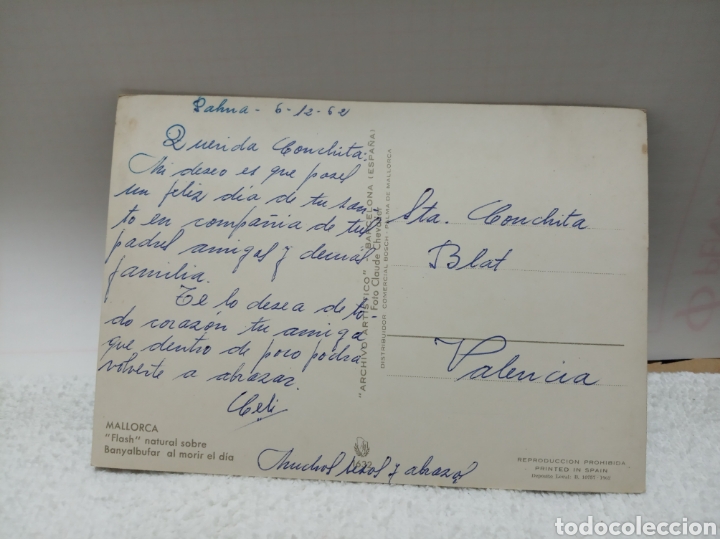 Palma - 6-12-62
Querida Conchita:
Mi deseo es que pases
un feliz día de tu san-
to en compañia de tus
padres amigos y demas
familia.
Te lo desea de to
do corazón tu amiga
que dentro de poco podra
volverte a abrazar.
Celi
Muchos besos y abrazos
Sta. Conchita
Blat
Valencia
"ARCHIVO ARTISTICO" - BARCELONA (ESPAÑA)
Foto Claude Chevalier
DISTRIBUIDOR: COMERCIAL BOSCH - PALMA DE MALLORCA
MALLORCA
"Flash" natural sobre
Banyalbufar al morir el día
REPRODUCCION PROHIBIDA
PRINTED IN SPAIN
todocoleccion